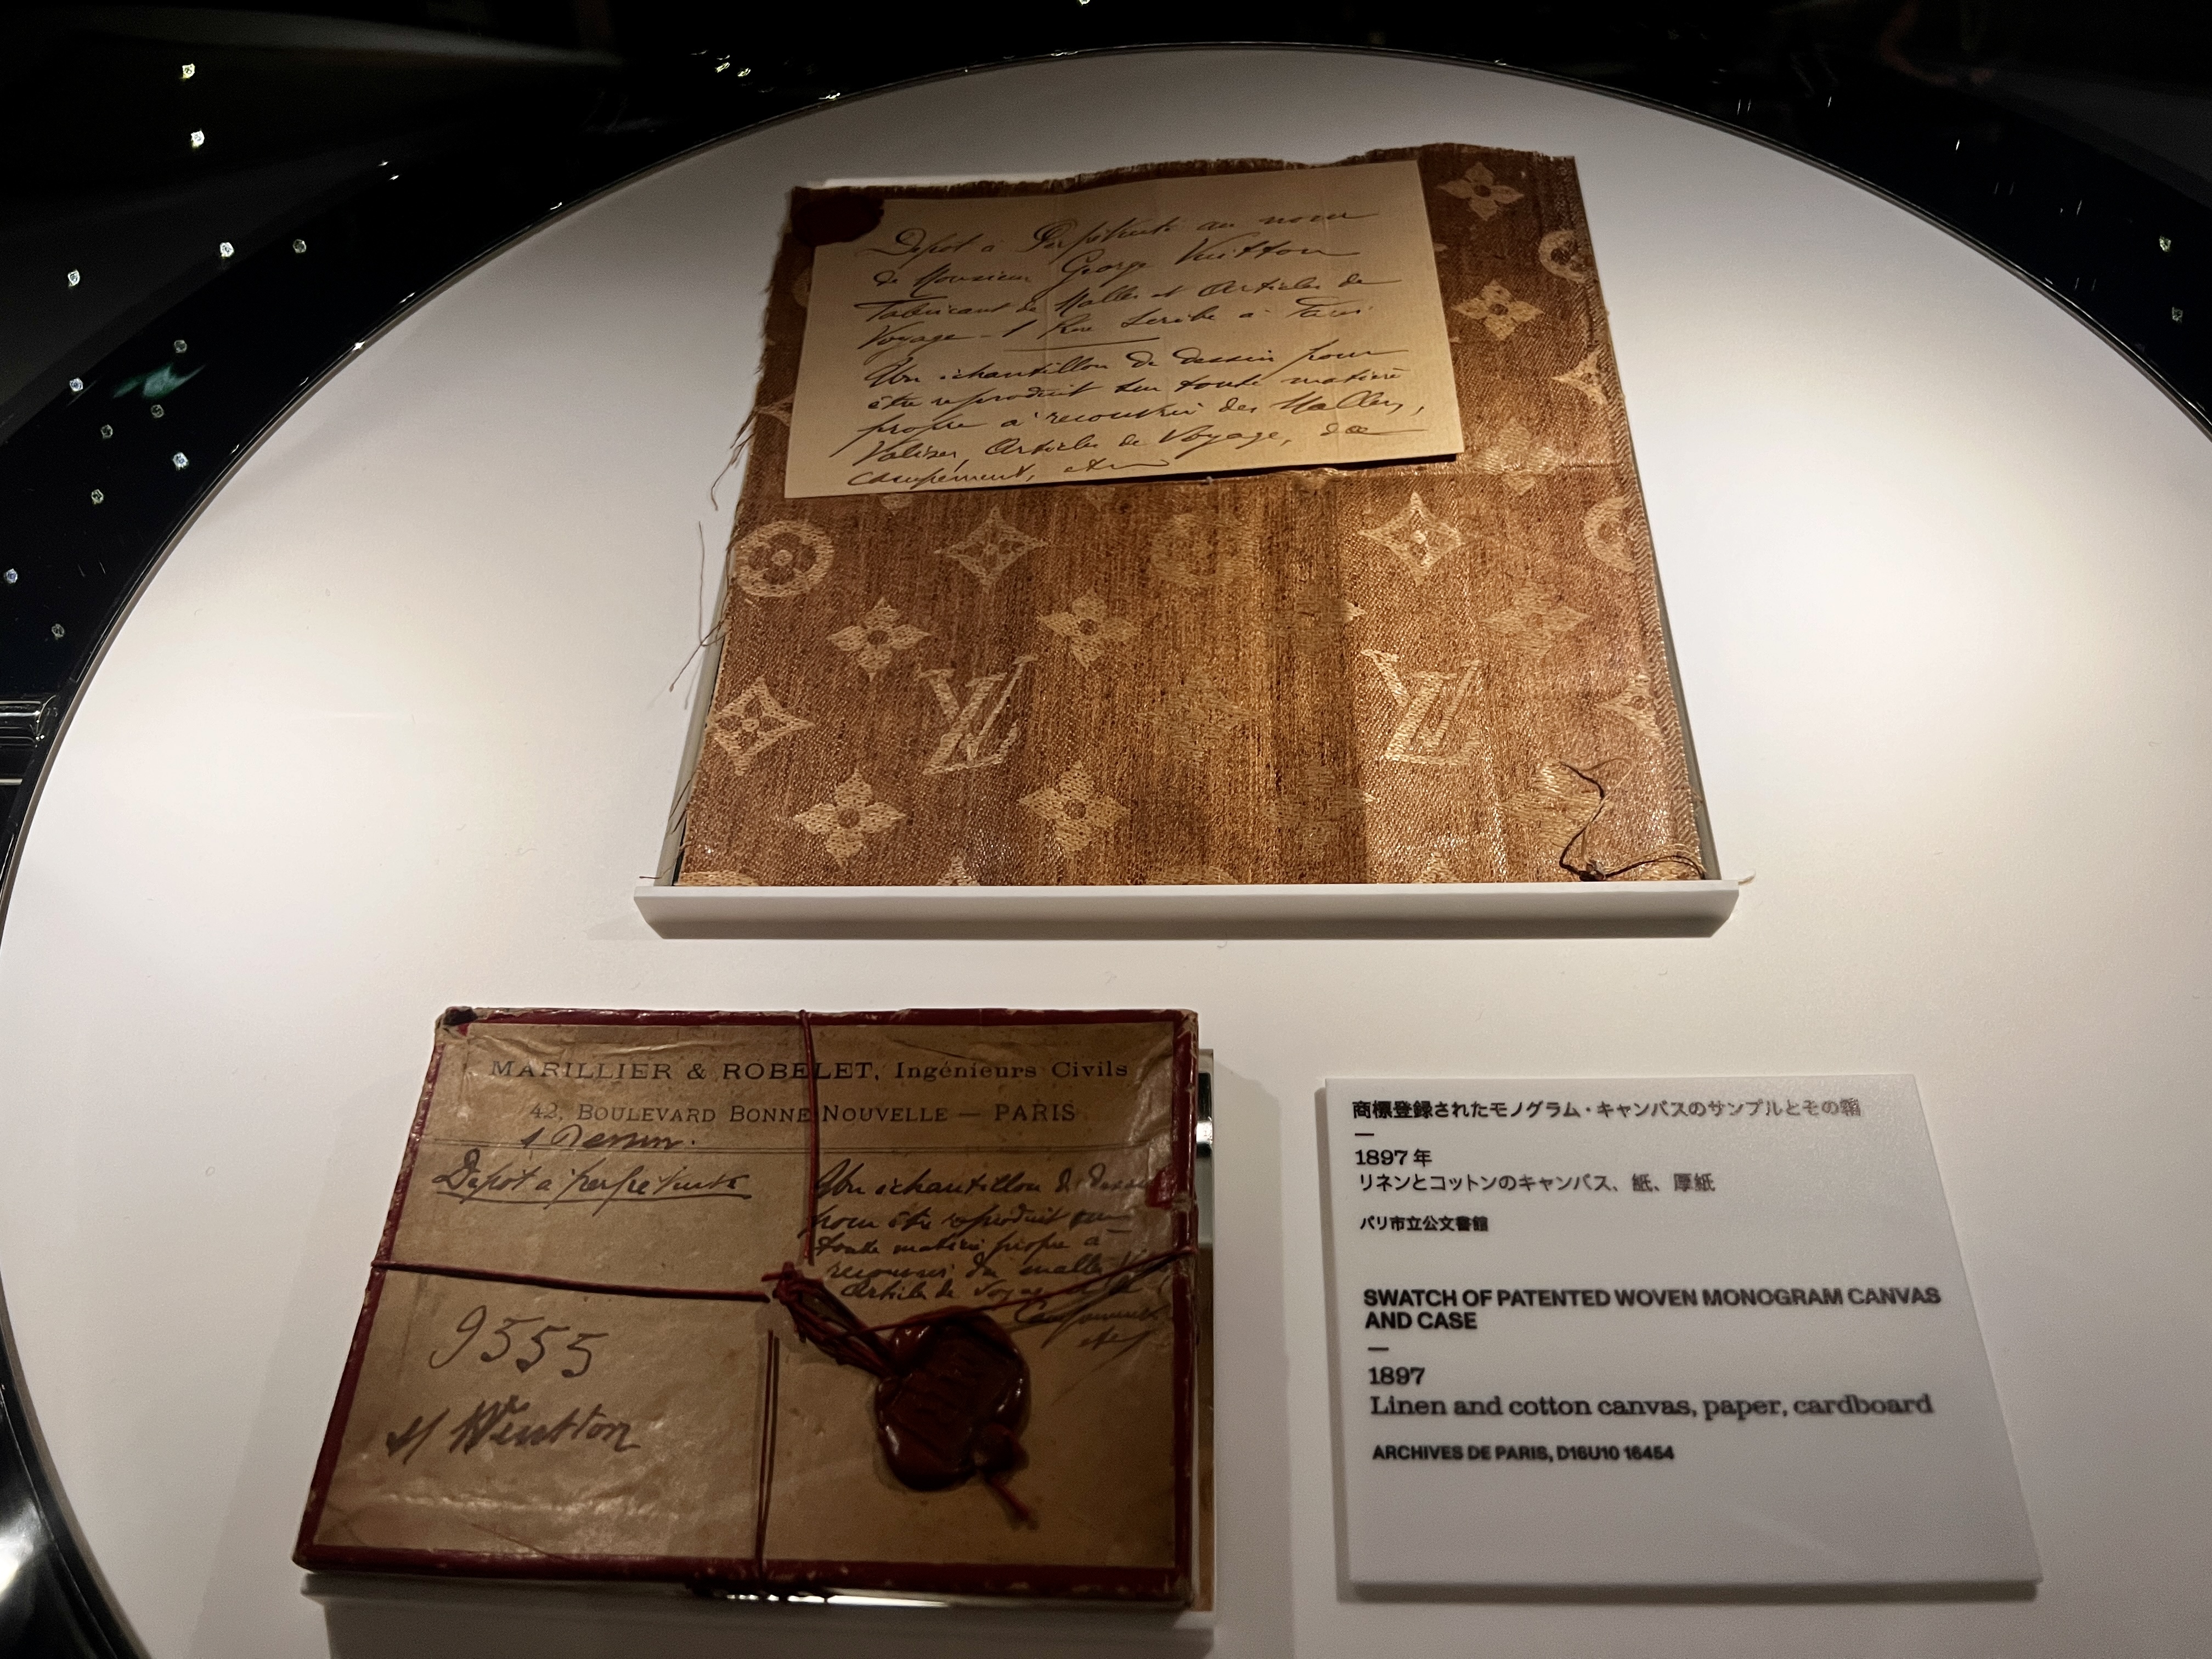 Depot à Perpétuité au nom
de Monsieur George Vuitton
Fabricant de Malles et Articles de
Voyage - 1 Rue Scribe à Paris
Un échantillon de dessin pour
être reproduit sur toute matière
propre à recouvrir des Malles,
Valises, Articles de Voyage, de
campement, etc
LV LV
MARILLIER & ROBELET, Ingénieurs Civils
42, BOULEVARD BONNE NOUVELLE — PARIS
1 Dessin.
Depot à perpétuité
Un échantillon de dessin
pour être reproduit sur
toute matière propre à
recouvrir des malles
Articles de Voyage
Campement
etc
9555
M Vuitton
商標登録されたモノグラム・キャンバスのサンプルとその箱
1897年
リネンとコットンのキャンバス、紙、厚紙
パリ市立公文書館
SWATCH OF PATENTED WOVEN MONOGRAM CANVAS
AND CASE
1897
Linen and cotton canvas, paper, cardboard
ARCHIVES DE PARIS, D16U10 16454